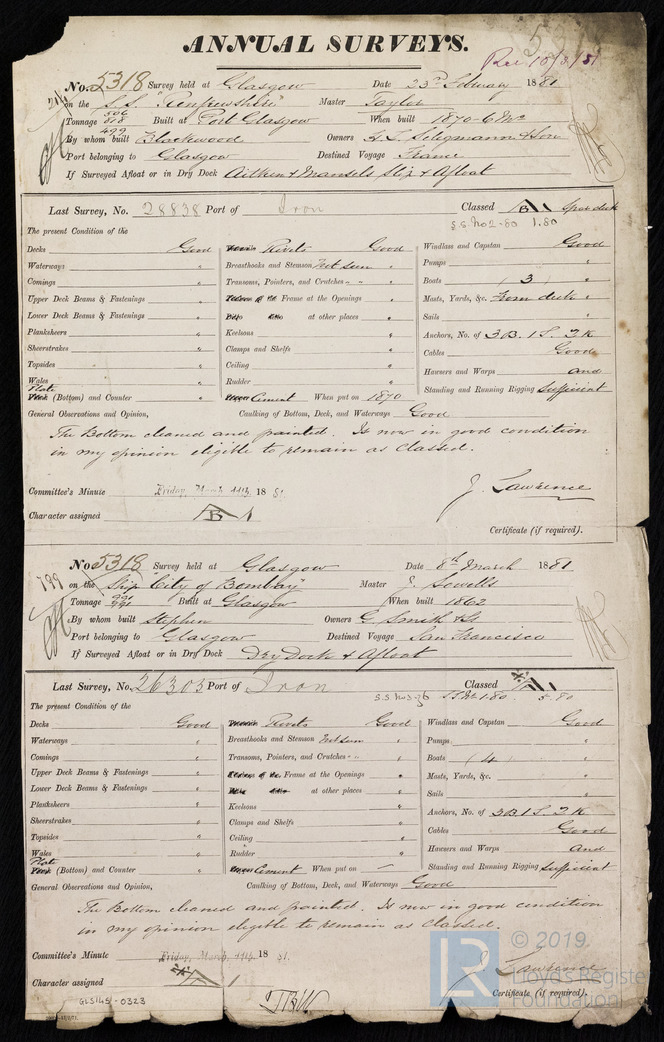 ANNUAL SURVEYS.
Rec 10/3/81
No. 5318 Survey held at Glasgow Date 23rd February 1881
on the S.S. "Renfrewshire" Master Taylor
Tonnage 506 818 499 Built at Port Glasgow When built 1870-6 Mo
By whom built Blackwood Owners H. L. Seligmann & Son
Port belonging to Glasgow Destined Voyage France
If Surveyed Afloat or in Dry Dock Aitken & Mansels Slip & Afloat
Last Survey, No. 28838 Port of Iron Classed A 1 Spar deck
S.S. No 2-80 1.80
The present Condition of the
Decks Good Rivets Good Windlass and Capstan Good
Waterways " Breasthooks and Stemson Not seen Pumps "
Comings " Transoms, Pointers, and Crutches " " Boats (3) "
Upper Deck Beams & Fastenings " Frame at the Openings " Masts, Yards, &c. From deck "
Lower Deck Beams & Fastenings " ditto at other places " Sails "
Planksheers " Keelsons " Anchors, No. of 3 B. 1 S. 2 K
Sheerstrakes " Clamps and Shelfs " Cables Good
Topsides " Ceiling " Hawsers and Warps and
Wales " Rudder " Standing and Running Rigging Sufficient
Plate (Bottom) and Counter " Cement When put on 1870
General Observations and Opinion, Caulking of Bottom, Deck, and Waterways Good
The Bottom cleaned and painted. Is now in good condition
in my opinion eligible to remain as Classed.
Committee's Minute Friday, March 11th, 1881.
J. Lawrence
Character assigned A 1
Certificate (if required).
No. 5318 Survey held at Glasgow Date 8th March 1881
799
on the Ship "City of Bombay" Master J. Sowells
Tonnage 991 Built at Glasgow When built 1862
By whom built Stephen Owners G. Smith & S
Port belonging to Glasgow Destined Voyage San Francisco
If Surveyed Afloat or in Dry Dock Dry Dock & Afloat
Last Survey, No. 26303 Port of Iron Classed A 1
S.S. No 3-76 S.S. No 1.80 5-80
The present Condition of the
Decks Good Rivets Good Windlass and Capstan Good
Waterways " Breasthooks and Stemson Not seen " Pumps "
Comings " Transoms, Pointers, and Crutches " " Boats (4) "
Upper Deck Beams & Fastenings " Frame at the Openings " Masts, Yards, &c. "
Lower Deck Beams & Fastenings " ditto at other places " Sails "
Planksheers " Keelsons " Anchors, No. of 3 B 1 S. 2 K
Sheerstrakes " Clamps and Shelfs " Cables Good
Topsides " Ceiling " Hawsers and Warps and
Wales " Rudder " Standing and Running Rigging Sufficient
Plate (Bottom) and Counter " Cement When put on —
General Observations and Opinion, Caulking of Bottom, Deck, and Waterways Good
The Bottom cleaned and painted. Is now in good condition
in my opinion eligible to remain as Classed.
Committee's Minute Friday, March, 11th, 1881.
J. Lawrence
Character assigned A 1
Certificate (if required).
GLS145-0323
LR © 2019.
Lloyd's Register
Foundation